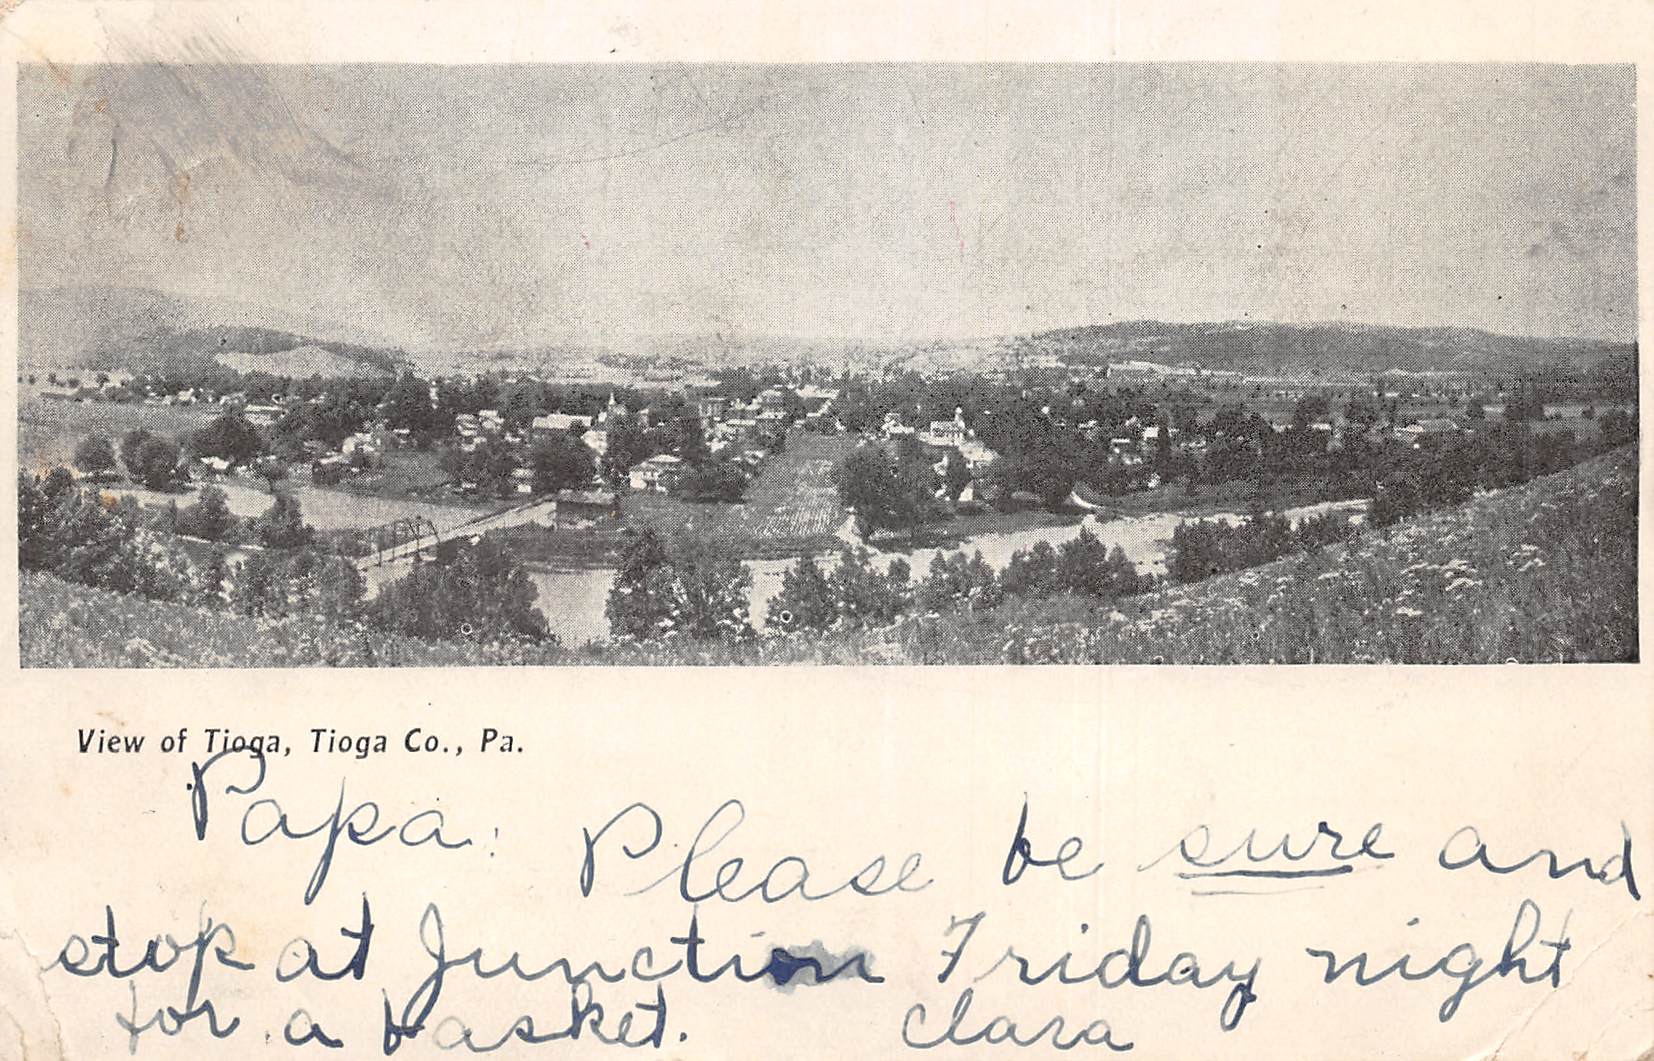 View of Tioga, Tioga Co., Pa.
Papa: Please be sure and
stop at Junction Friday night
for a basket. Clara